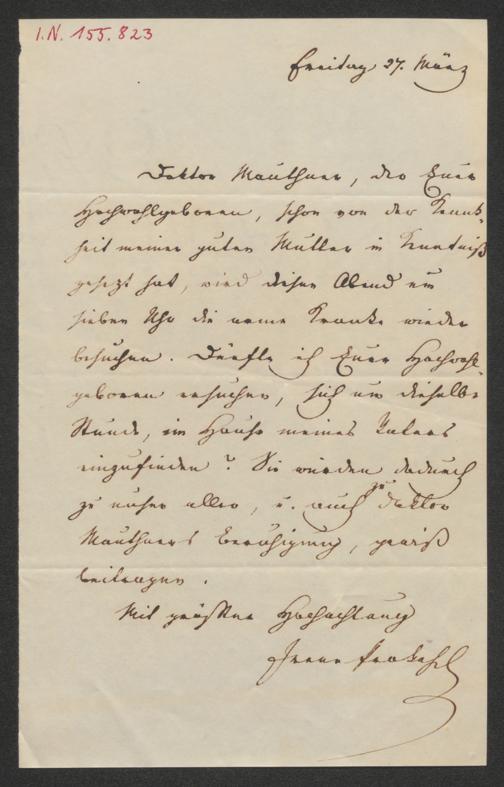 I.N. 155.823
Freitag 27. März
Doktor Mauthner, der Euer
Hochwohlgeboren, schon von der Krank-
heit meiner guten Mutter in Kenntniß
gesetzt hat, wird diesen Abend um
sieben Uhr die arme Kranke wieder
besuchen. Dürfte ich Euer Hochwohl-
geboren ersuchen, sich um dieselbe
Stunde, im Hause meines Vaters
einzufinden? Sie würden dadurch
zu unser aller, u. auch zu Doktor
Mauthners Beruhigung, gewiß
beitragen.
Mit größter Hochachtung
Irene Prokesch